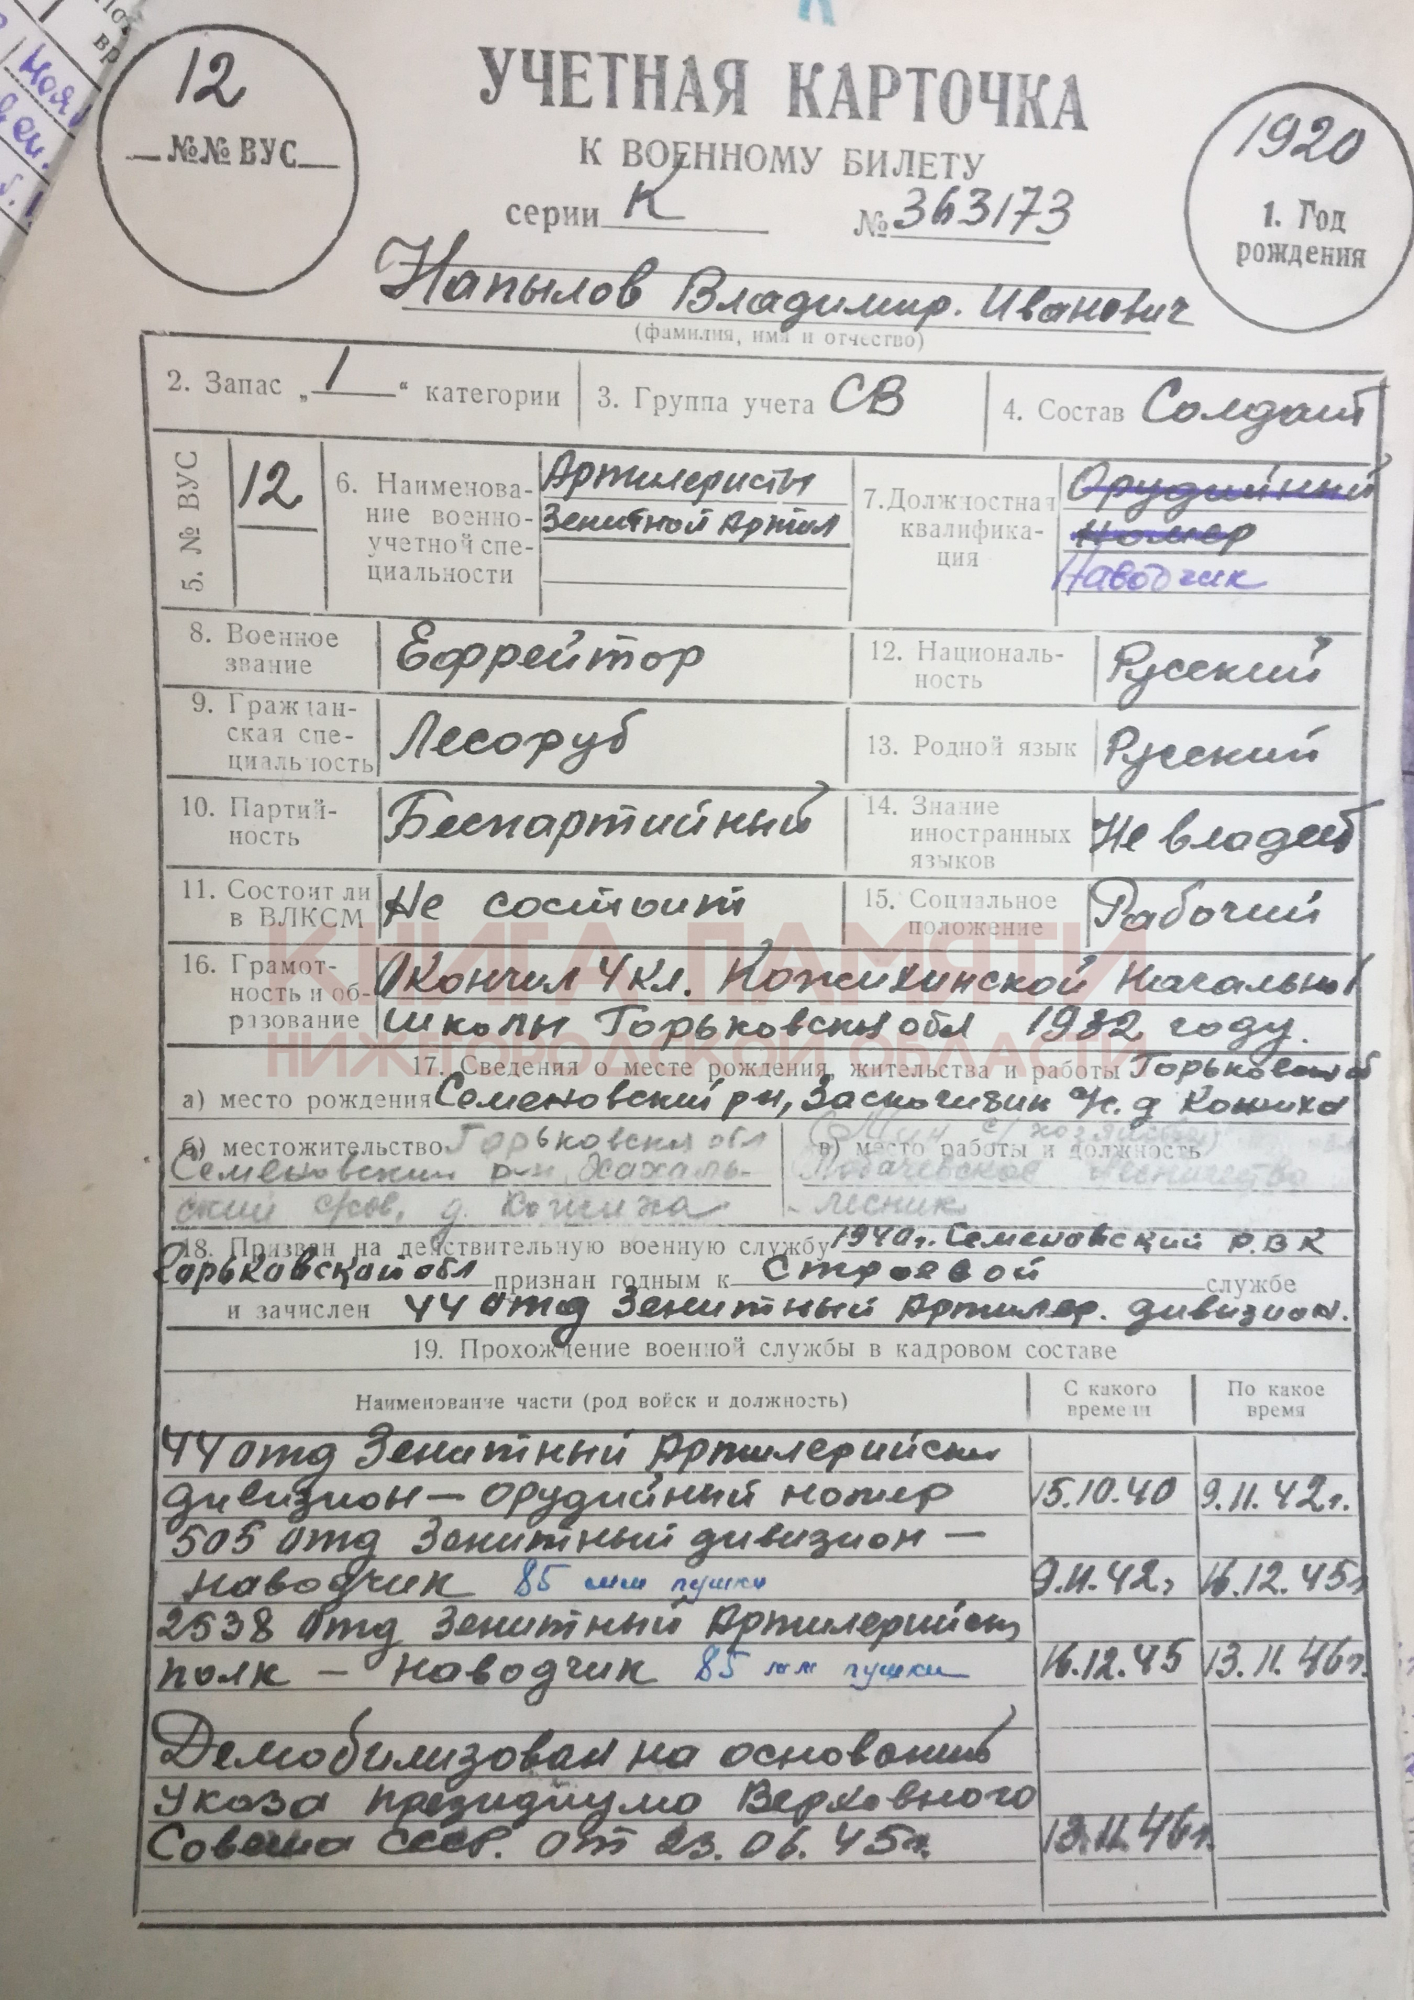 12
№№ ВУС
УЧЕТНАЯ КАРТОЧКА
К ВОЕННОМУ БИЛЕТУ
серии К № 363173
1920
1. Год
рождения
Напылов Владимир. Иванович
(фамилия, имя и отчество)
2. Запас „1“ категории
3. Группа учета СВ
4. Состав Солдат
5. № ВУС
12
6. Наименова-
ние военно-
учетной спе-
циальности
Артилеристы
Зенитной Артил
7. Должностная
квалифика-
ция
Орудийный
номер
Наводчик
8. Военное
звание
Ефрейтор
12. Националь-
ность
Русский
9. Граждан-
ская спе-
циальность
Лесоруб
13. Родной язык
Русский
10. Партий-
ность
Беспартийный
14. Знание
иностранных
языков
Не владеет
11. Состоит ли
в ВЛКСМ
Не состоит
15. Социальное
положение
Рабочий
КНИГА ПАМЯТИ
НИЖЕГОРОДСКОЙ ОБЛАСТИ
16. Грамот-
ность и об-
разование
Окончил 4 кл. Кожихинской Начальной
школы Горьковской обл 1932 году.
17. Сведения о месте рождения, жительства и работы Горьковской об
а) место рождения Семеновский рн, д Кожиха
б) местожительство Горьковская обл
Семеновский р-н, Хахаль-
ский с/сов, д. Кожиха
в) место работы и должность
лесничество
лесник
18. Призван на действительную военную службу 1940г. Семеновский Р.В.К
Горьковской обл признан годным к Строевой службе
и зачислен 44 отд Зенитный Артилер. дивизион.
19. Прохождение военной службы в кадровом составе
Наименование части (род войск и должность)
С какого
времени
По какое
время
44 отд Зенитный Артилерийский
дивизион — орудийный номер 15.10.40 9.11.42г.
505 отд Зенитный дивизион —
наводчик 85 мм пушки 9.11.42г 16.12.45г
2538 отд Зенитный Артилерийск
полк — наводчик 85 мм пушки 16.12.45 13.11.46г.
Демобилизован на основании
Указа президиума Верховного
Совета СССР. от 23.06.45г. 13.11.46г.